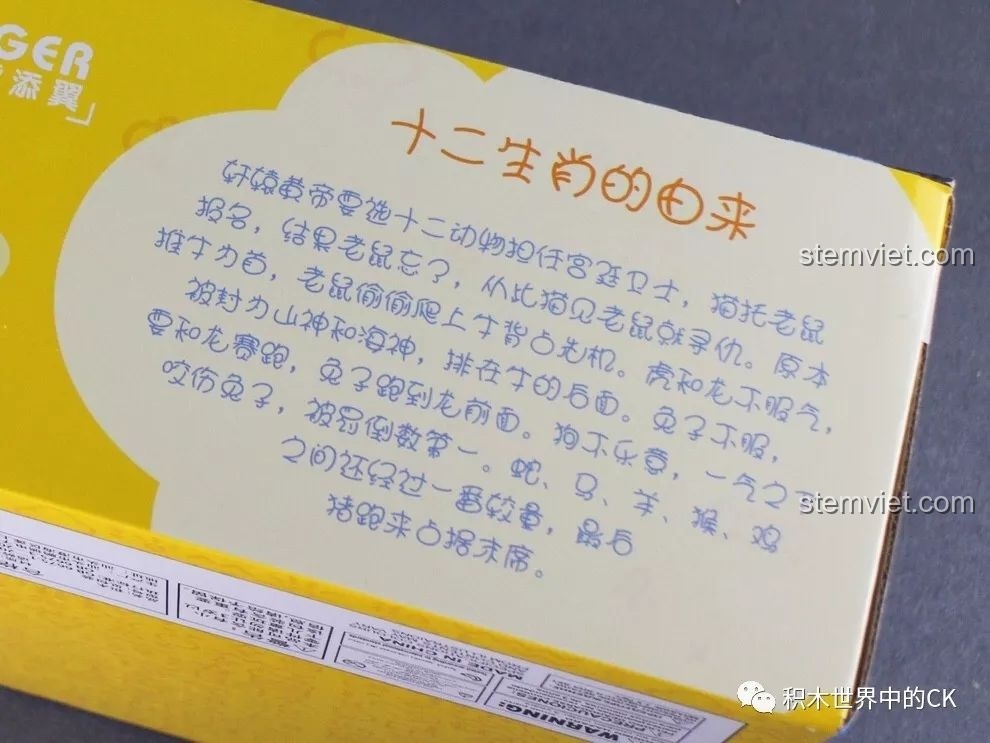 GER
添翼」
十二生肖的由来
轩辕黄帝要选十二动物担任宫廷卫士，猫托老鼠
报名，结果老鼠忘了，从此猫见老鼠就寻仇。原本
推牛为首，老鼠偷偷爬上牛背占先机。虎和龙不服气，
被封为山神和海神，排在牛的后面。兔子不服，
要和龙赛跑，兔子跑到龙前面。狗不乐意，一气之下
咬伤兔子，被罚倒数第一。蛇、马、羊、猴、鸡
之间还经过一番较量，最后
猪跑来占据末席。
stemviet.com
stemviet.com
MADE IN CHINA
WARNING:
积木世界中的CK